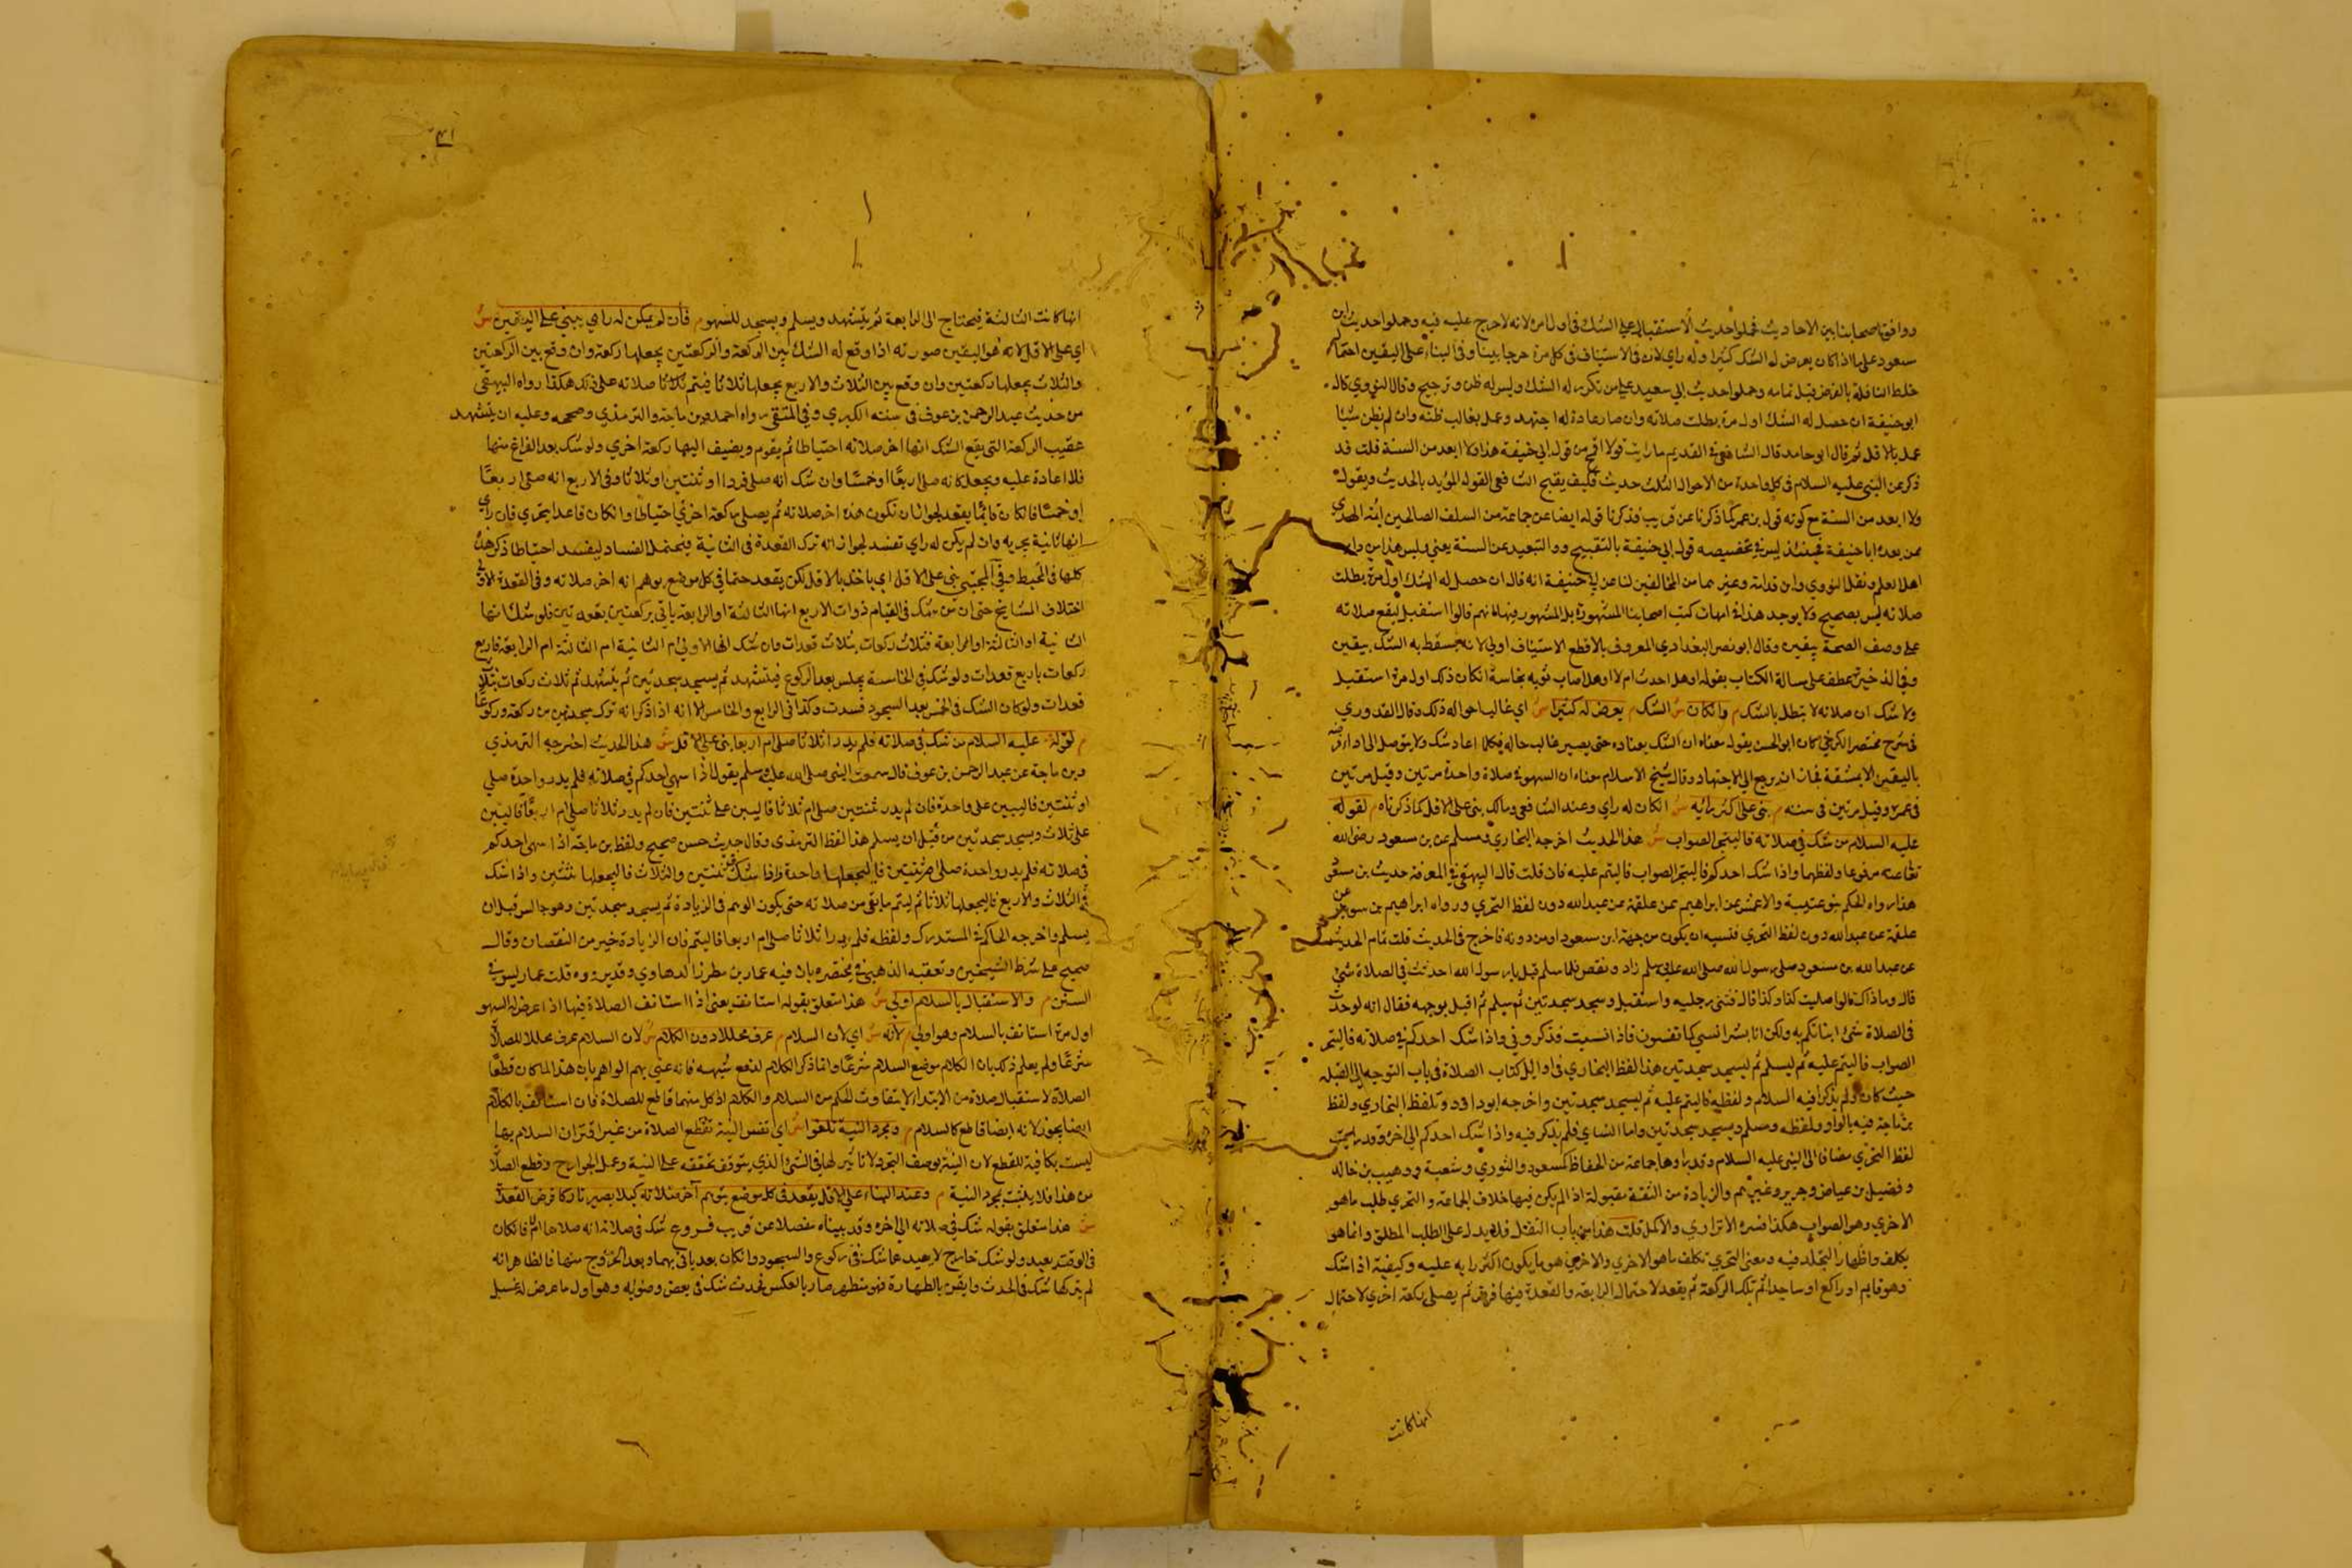 ووافق اصحابنا بين الاحاديث فحملوا حديث الاستقبال على الشك في اول مرة لانه لا حرج عليه فيه وحملوا حديث ابن
مسعود على ما اذا كان يعرض له الشك كثيرا وله راي لان في الاستيناف في كل مرة حرجا بينا وفي البناء على اليقين احتمال
خلط النافلة بالفرض قبل تمامه وحملوا حديث ابي سعيد على من تكرر له الشك وليس له ظن وترجيح وقال النووي قال
ابو حنيفة ان حصل له الشك اول مرة بطلت صلاته وان صار عادة له اجتهد وعمل بغالب ظنه وان لم يظن شيا
عمل بالاقل ثم قال ابو حامد قال الشافعي في القديم ما رايت قولا اقبح من قول ابي حنيفة هذا ولا ابعد من السنة قلت قد
ذكر عن النبي عليه السلام في كل واحدة من الاحوال الثلث حديث فكيف يقبح الشافعي القول المؤيد بالحديث ويقول
ولا ابعد من السنة مع كونه قول بن عمر كما ذكرنا عن قريب وذكرنا قوله ايضا عن جماعة من السلف الصالحين ائمة الهدي
ممن بعده ابا حنيفة فحينئذ ليس في تخصيصه قول ابي حنيفة بالتقبيح والتبعيد عن السنة يعني وليس هذا من داب
اهل العلم ونقل النووي وابن قدامة وغيرهما من المخالفين لنا عن ابي حنيفة انه قال ان حصل له الشك اول مرة بطلت
صلاته ليس بصحيح ولا يوجد هذا في امهات كتب اصحابنا المشهورة بل المشهور فيها انهم قالوا استقبل ليقع صلاته
على وصف الصحة بيقين وقال ابو نصر البغدادي المعروف بالاقطع الاستيناف اولى لانه يسقط به الشك بيقين
وفي الذخيرة عطف على مسالة الكتاب بقوله او هل احدث ام لا او هل اصاب ثوبه نجاسة ان كان ذلك اول مرة استقبل
ولا شك ان صلاته لا تبطل بالشك م وان كان ش الشك م يعرض له كثيرا ش اي غالب احواله ذلك وقال القدوري
في شرح مختصر الكرخي كان ابو الحسن يقول معناه ان الشك يعتاده حتى يصير غالب حاله فكلما اعاد شك ولا يتوصل الى اداء فرضه
باليقين الا بمشقة فجاز ان يرجع الى الاجتهاد وقال شيخ الاسلام معناه ان السهو في صلاة واحدة مرتين وقيل مرتين
في عمره وقيل مرتين في سنته م بنى على اكبر رايه ش ان كان له راي وعند الشافعي ومالك بنى على الاقل كما ذكرناه م لقوله
عليه السلام من شك في صلاته فاليتحر الصواب ش هذا الحديث اخرجه البخاري ومسلم عن بن مسعود رضي الله
تعالى عنه مرفوعا ولفظهما واذا شك احدكم فاليتحر الصواب فاليتم عليه فان قلت قال البيهقي في المعرفة حديث بن مسعود
هذا رواه الحكم بن عتيبة والاعمش عن ابراهيم عن علقمة عن عبد الله دون لفظ التحري ورواه ابراهيم بن سويد عن
علقمة عن عبد الله دون لفظ التحري فنسيه ان يكون من جهة ابن مسعود او من دونه فادرج في الحديث قلت تمام الحديث
عن عبد الله بن مسعود صلى رسول الله صلى الله عليه وسلم زاد ونقص فلما سلم قيل يا رسول الله احدث في الصلاة شئ
قال وما ذاك قالوا صليت كذا وكذا قال فثنى رجليه واستقبل وسجد سجدتين ثم سلم ثم اقبل بوجهه فقال انه لو حدث
في الصلاة شئ انباتكم به ولكن انا بشر انسي كما تنسون فاذا نسيت فذكروني واذا شك احدكم في صلاته فاليتحر
الصواب فاليتم عليه ثم ليسلم ثم ليسجد سجدتين هذا لفظ البخاري في اوائل كتاب الصلاة في باب التوجه الى القبلة
حيث كان ولم يذكر فيه السلام ولفظه فاليتم عليه ثم يسجد سجدتين واخرجه ابو داود بلفظ البخاري ولفظ
بن ماجة فيه بالواو ولفظه وسلم ويسجد سجدتين واما النساي فلم يذكر فيه واذا شك احدكم الى اخره وقد
لفظ التحري مضافا الى النبي عليه السلام وقد رواها جماعة من الحفاظ كمسعود والثوري وشعبة ووهيب بن خالد
وفضيل بن عياض وجرير وغيرهم والزيادة من الثقة مقبولة اذ لم يكن فيها خلاف الجماعة والتحري طلب ما هو
الاحري وهو الصواب هكذا فسره الاتراري والاكمل قلت هذا من باب التفعل فلا يدل على الطلب المطلق وانما هو
يكلف واظهار التجلد فيه ومعنى التحري تكلف ما هو الاحري والاحري هو ما يكون اكثر رايه عليه وكيفية اذا شك
وهو قايم او راكع او ساجد اتم تلك الركعة ثم يقعد لاحتمال الرابعة والقعدة فيها فرض ثم يصلي ركعة اخري لاحتمال
انها كانت
٤١
انها كانت الثالثة فيحتاج الى الرابعة ثم يتشهد ويسلم ويسجد للسهو م فان لم يكن له راي يبني على اليقين ش
اي على الاقل لانه هو اليقين صورته اذا وقع له الشك بين الركعة والركعتين يجعلها ركعة وان وقع بين الركعتين
والثلاث يجعلها ركعتين وان وقع بين الثلاث والاربع يجعلها ثلاثا فيتم ثلاثا صلاته على ذلك هكذا رواه البيهقي
من حديث عبد الرحمن بن عوف في سننه الكبري وفي المنتقى رواه احمد وبن ماجة والترمذي وصححه وعليه ان يتشهد
عقيب الركعة التي يقع الشك انها اخر صلاته احتياطا ثم يقوم ويضيف اليها ركعة اخري ولو شك بعد الفراغ منها
فلا اعادة عليه ويجعل كانه صلى اربعا او خمسا وان شك انه صلى فردا او ثنتين او ثلاثا وفي الاربع انه صلى اربعا
او خمسا فان كان قايما يقعد لجواز ان تكون هذه اخر صلاته ثم يصلي ركعة اخري احتياطا وان كان قاعدا يتحري فان راي
انها ثانية يجزيه وان لم يكن له راي تفسد لجواز انه ترك القعدة في الثانية فيحتمل الفساد ليفسد احتياطا ذكر هذا
كلها في المحيط وفي المجتبى بنى على الاقل اي ياخذ بالاقل لكن يقعد حتما في كل موضع يوهم انه اخر صلاته وفي القعدة الاولى
اختلاف المشايخ حتى ان من شك في القيام ذوات الاربع انها الثالثة او الرابعة ياتي بركعتين بقعدتين فلو شك انها
الثانية او الثالثة او الرابعة فثلاث ركعات بثلاث قعدات فان شك انها الاولى ام الثانية ام الثالثة ام الرابعة فاربع
ركعات باربع قعدات ولو شك في الخامسة يجلس بعد الركوع فيتشهد ثم يسجد سجدتين ثم يتشهد ثم ثلاث ركعات بثلاث
قعدات ولو كان الشك في الخمس بعد السجود فسدت وكذا في الرابع والخامس الا انه اذا ذكر انه ترك سجدتين من ركعة وركوعا
م لقوله عليه السلام من شك في صلاته فلم يدر اثلاثا صلى ام اربعا بنى على الاقل ش هذا الحديث اخرجه الترمذي
وبن ماجة عن عبد الرحمن بن عوف قال سمعت النبي صلى الله عليه وسلم يقول اذا سهى احدكم في صلاته فلم يدر واحدة صلى
او ثنتين فاليبين على واحدة فان لم يدر ثنتين صلى ام ثلاثا فاليبين على ثنتين فان لم يدر ثلاثا صلى ام اربعا فاليبين
على ثلاث ويسجد سجدتين من قبل ان يسلم هذا لفظ الترمذي وقال حديث حسن صحيح ولفظ بن ماجة اذا سهى احدكم
في صلاته فلم يدر واحدة صلى ام ثنتين فاليجعلها واحدة واذا شك في ثنتين والثلاث فاليجعلها ثنتين واذا شك
في الثلاث والاربع فاليجعلها ثلاثا ثم ليتم ما بقي من صلاته حتى يكون الوهم في الزيادة ثم يسجد سجدتين وهو جالس قبل ان
يسلم واخرجه الحاكم في المستدرك ولفظه فلم يدر اثلاثا صلى ام اربعا فاليتم فان الزيادة خير من النقصان وقال
صحيح على شرط الشيخين وتعقبه الذهبي في مختصره بان فيه عمار بن مطر الرهاوي وقد تركوه قلت عمار ليس في
السنن م والاستقبال بالسلام اولى ش هذا متعلق بقوله استانف يعني اذا استانف الصلاة فيها اذا عرض له السهو
اول مرة استانف بالسلام وهو اولى م لانه ش اي لان السلام م عرف محللا دون الكلام ش لان السلام عرف محللا للصلاة
شرعا ولم يعلم ذلك بان الكلام موضع السلام شرعا وانما ذكر الكلام لدفع شبهة فانه عنى بهم الواهم بان هذا لما كان قطعا
الصلاة لاستقبال صلاة من الابتداء لا يتفاوت الحكم من السلام والكلام اذ كل منهما قاطع للصلاة فان استانف بالكلام
ايضا يجوز لانه ايضا قاطع كالسلام م ومجرد النية تلغوا ش اي نفس النية تقطع الصلاة من غير اقتران السلام بها
ليست بكافية للقطع لان النية بوصف التجرد لا تاثير لها في الشئ الذي يتوقف تحققه على النية وعمل الجوارح وقطع الصلاة
من هذا فلا يثبت بمجرد النية م وعند البناء على الاقل يقعد في كل موضع يتوهم اخر صلاته كيلا يصير تاركا فرض القعدة
ش هذا متعلق بقوله شك في صلاته الى اخره وقد بيناه مفصلا عن قريب فروع شك في صلاة انه صلاها ام لا فان كان
في الوقت يعيد ولو شك خارج لا يعيد عما شك في ركوع والسجود وان كان بعد ياتي بهما وبعد الخروج منها فالظاهر انه
لم يتركها شك في الحدث وايقن بالطهارة فهو متطهر صار بالعكس محدث شك في بعض وضوئه وهو اول ما عرض له غسل